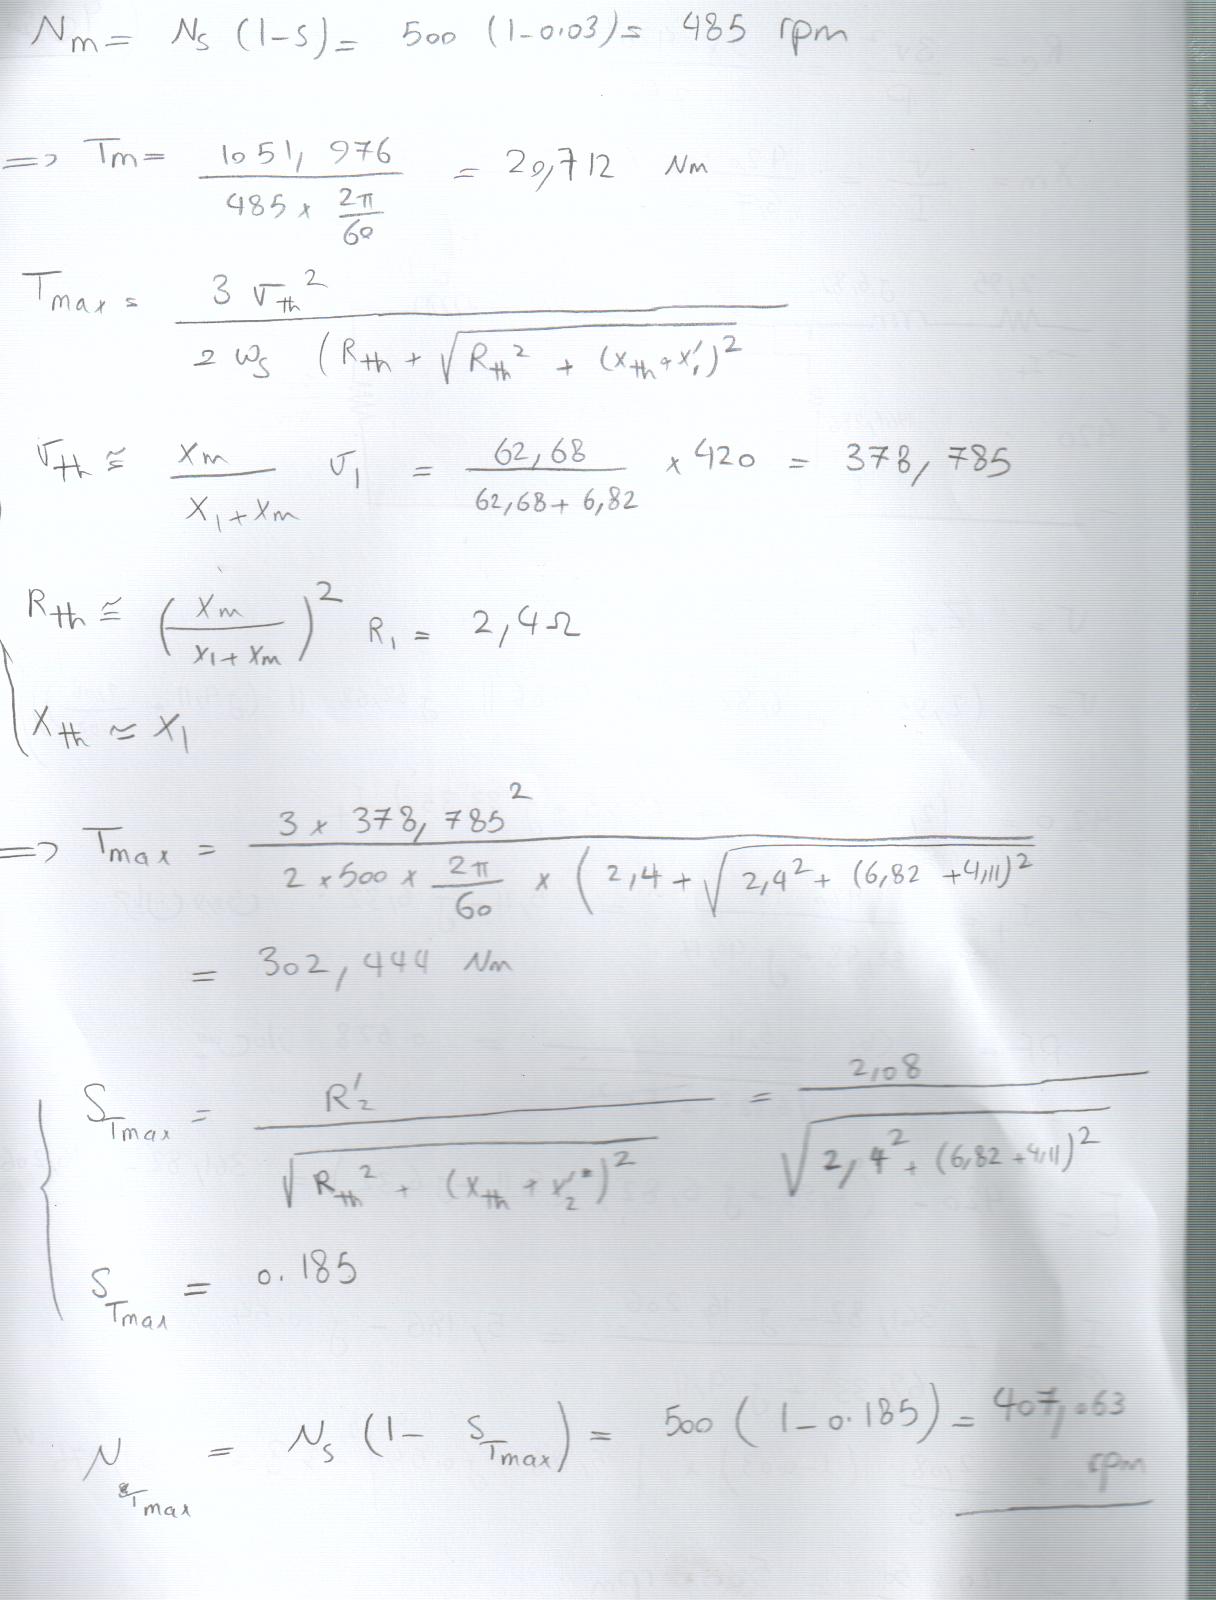 Nm = Ns (1-s) = 500 (1-0.03) = 485 rpm
=> Tm = 1051,976 / (485 x 2π/60) = 20,712 Nm
Tmax = 3 Vth² / 2 ωs (Rth + √(Rth² + (Xth + X'1)²
Vth ≅ Xm / (X1 + Xm) V1 = 62,68 / (62,68 + 6,82) x 420 = 378,785
Rth ≅ (Xm / (X1 + Xm))² R1 = 2,4 Ω
Xth ≈ X1
=> Tmax = 3 x 378,785² / 2 x 500 x 2π/60 x (2,4 + √(2,4² + (6,82 + 4,11)²
= 302,444 Nm
STmax = R'2 / √(Rth² + (Xth + X'2)²) = 2,08 / √(2,4² + (6,82 + 4,11)²)
STmax = 0.185
NTmax = Ns (1 - STmax) = 500 (1-0.185) = 407,063 rpm